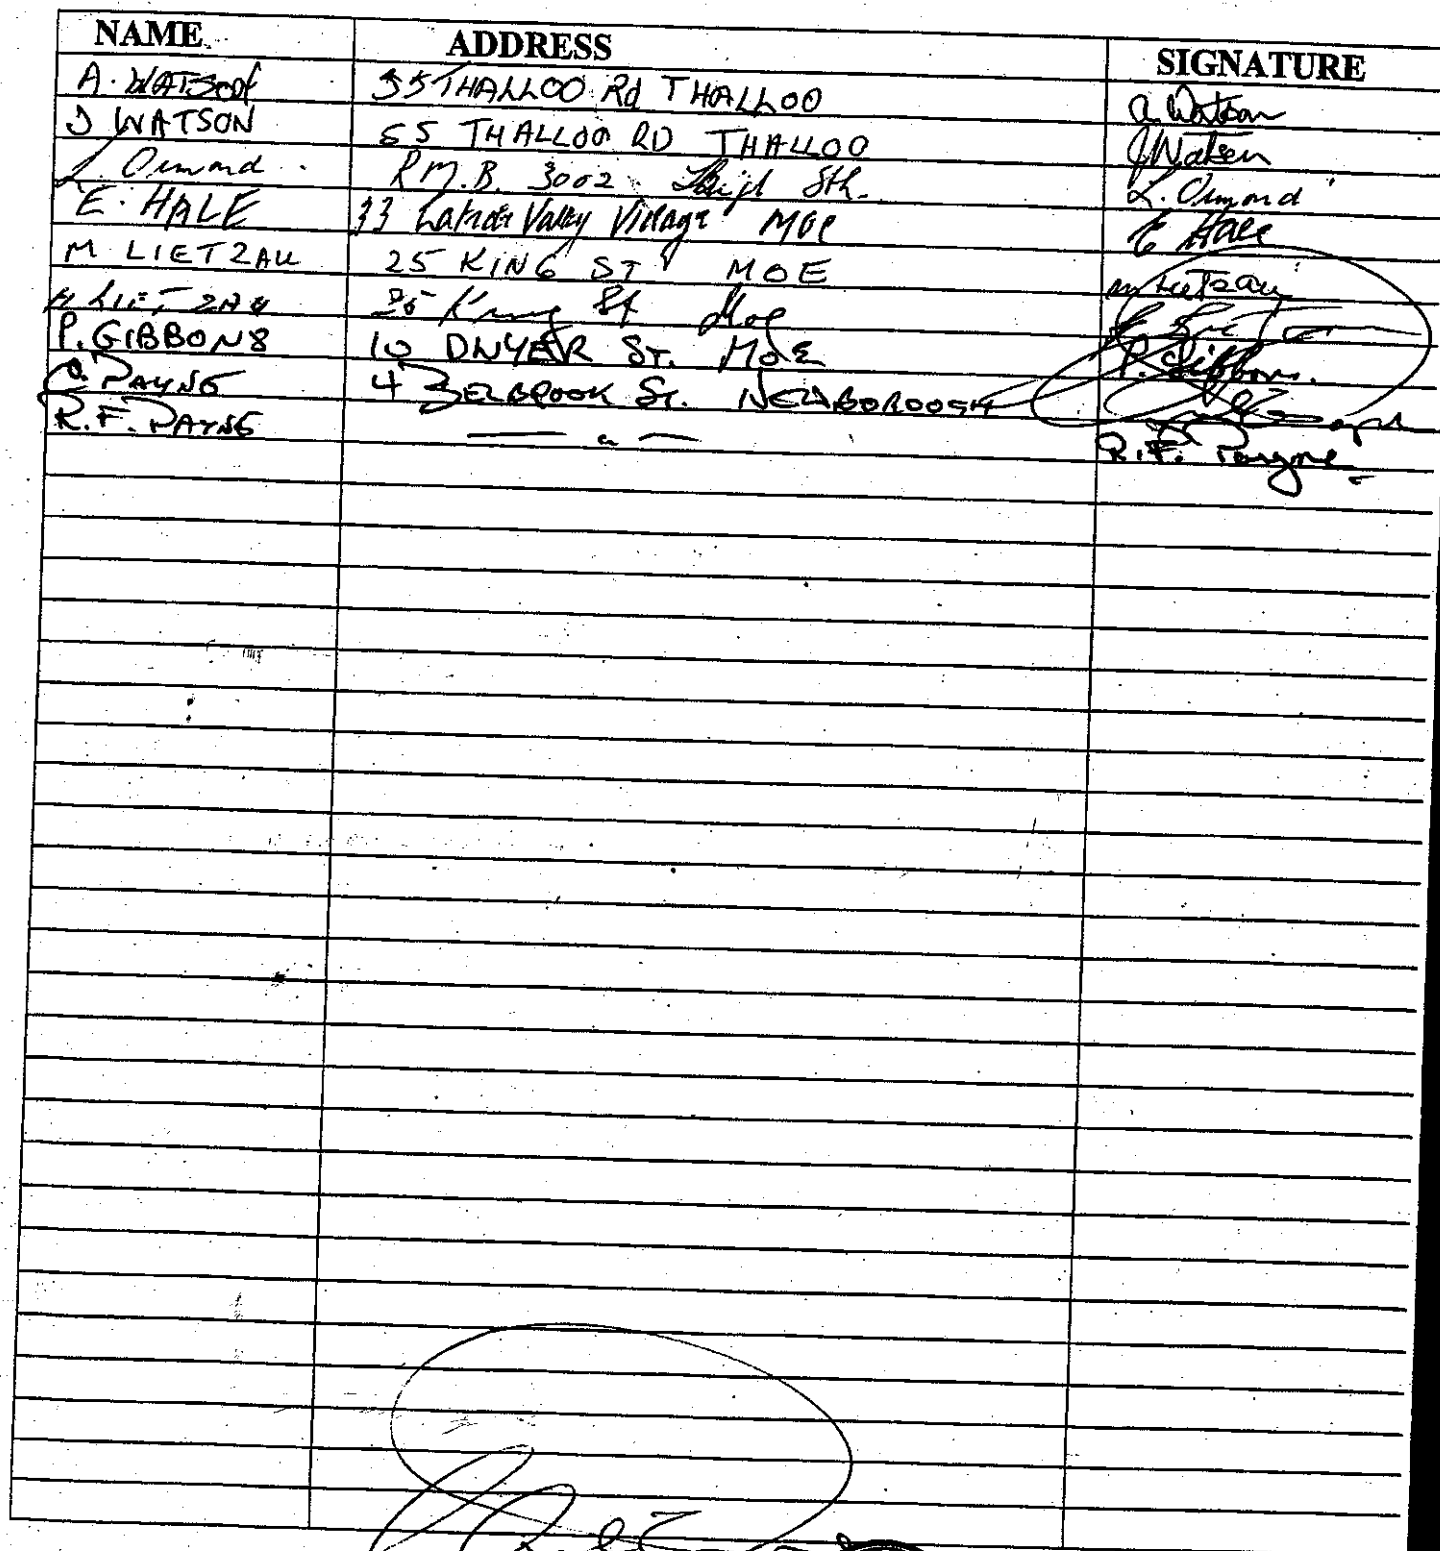 NAME ADDRESS SIGNATURE
A. WATSON 55 THALLOO Rd THALLOO A. Watson
J WATSON 55 THALLOO RD THALLOO J Watson
L. Ormond R.M.B. 3002 Sth. L. Ormond
E. HALE 33 Latrobe Valley Village MOE E Hale
M LIETZAU 25 KING ST MOE M Lietzau
LIETZAU 25 King St Moe
P. GIBBONS 10 DWYER ST. MOE P. Gibbons.
PAYNE 4 ST. NEWBOROUGH
R.F. PAYNE — " — R.F. Payne